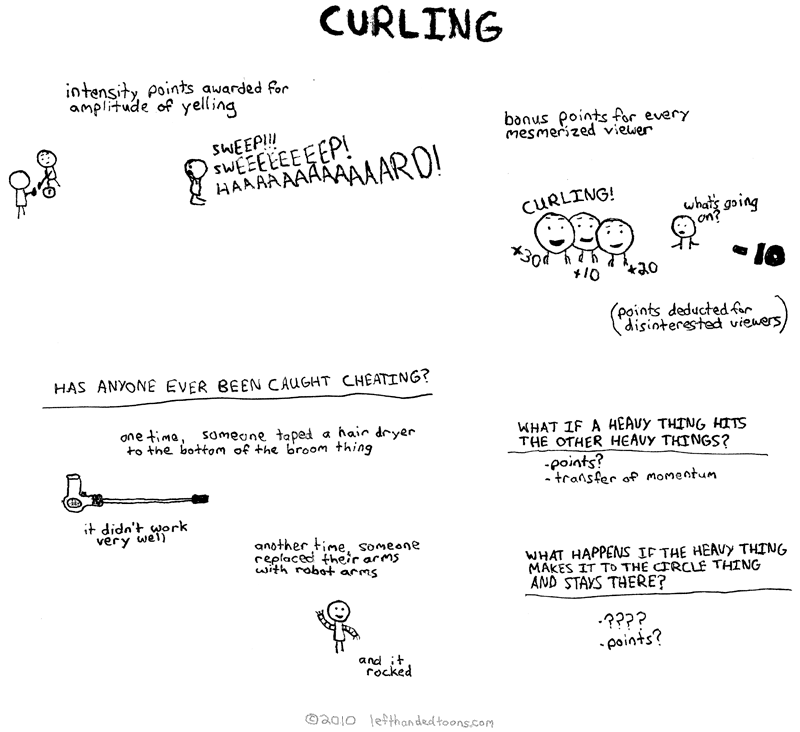 CURLING
intensity points awarded for
amplitude of yelling
SWEEP!!!
SWEEEEEEEEP!
HAAAAAAAAAAAAARD!
bonus points for every
mesmerized viewer
CURLING!
+30
+10
+20
what's going
on?
-10
(points deducted for
disinterested viewers)
HAS ANYONE EVER BEEN CAUGHT CHEATING?
one time, someone taped a hair dryer
to the bottom of the broom thing
it didn't work
very well
another time, someone
replaced their arms
with robot arms
and it
rocked
WHAT IF A HEAVY THING HITS
THE OTHER HEAVY THINGS?
-points?
-transfer of momentum
WHAT HAPPENS IF THE HEAVY THING
MAKES IT TO THE CIRCLE THING
AND STAYS THERE?
-????
-points?
©2010 lefthandedtoons.com